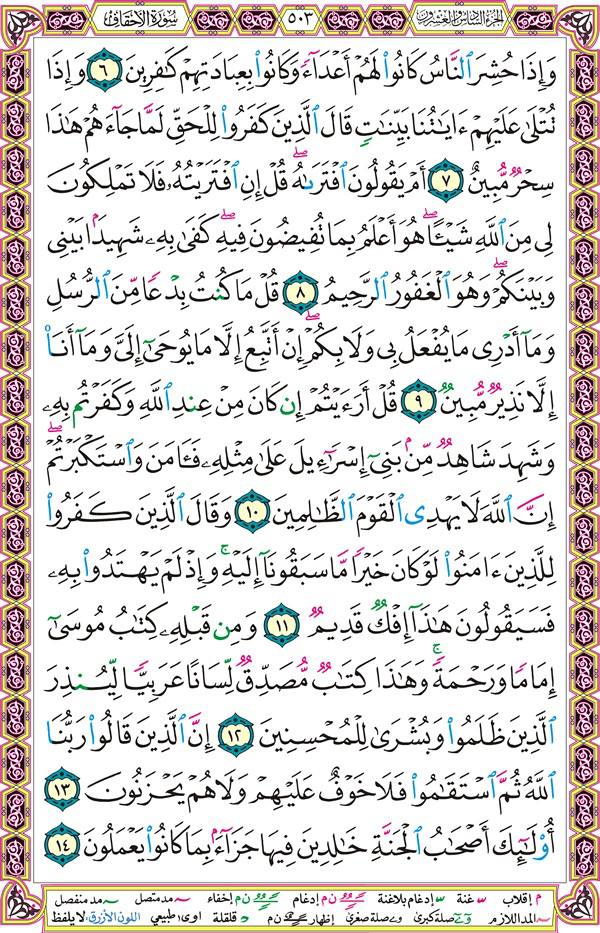 الجزء السادس والعشرون ٥٠٣ سورة الأحقاف
وَإِذَا حُشِرَ ٱلنَّاسُ كَانُوا۟ لَهُمْ أَعْدَآءً وَكَانُوا۟ بِعِبَادَتِهِمْ كَٰفِرِينَ ٦ وَإِذَا
تُتْلَىٰ عَلَيْهِمْ ءَايَٰتُنَا بَيِّنَٰتٍ قَالَ ٱلَّذِينَ كَفَرُوا۟ لِلْحَقِّ لَمَّا جَآءَهُمْ هَٰذَا
سِحْرٌ مُّبِينٌ ٧ أَمْ يَقُولُونَ ٱفْتَرَىٰهُ ۖ قُلْ إِنِ ٱفْتَرَيْتُهُۥ فَلَا تَمْلِكُونَ
لِى مِنَ ٱللَّهِ شَيْـًٔا ۖ هُوَ أَعْلَمُ بِمَا تُفِيضُونَ فِيهِ ۖ كَفَىٰ بِهِۦ شَهِيدًۢا بَيْنِى
وَبَيْنَكُمْ ۖ وَهُوَ ٱلْغَفُورُ ٱلرَّحِيمُ ٨ قُلْ مَا كُنتُ بِدْعًا مِّنَ ٱلرُّسُلِ
وَمَآ أَدْرِى مَا يُفْعَلُ بِى وَلَا بِكُمْ ۖ إِنْ أَتَّبِعُ إِلَّا مَا يُوحَىٰٓ إِلَىَّ وَمَآ أَنَا۠
إِلَّا نَذِيرٌ مُّبِينٌ ٩ قُلْ أَرَءَيْتُمْ إِن كَانَ مِنْ عِندِ ٱللَّهِ وَكَفَرْتُم بِهِۦ
وَشَهِدَ شَاهِدٌ مِّنۢ بَنِىٓ إِسْرَٰٓءِيلَ عَلَىٰ مِثْلِهِۦ فَـَٔامَنَ وَٱسْتَكْبَرْتُمْ ۖ
إِنَّ ٱللَّهَ لَا يَهْدِى ٱلْقَوْمَ ٱلظَّٰلِمِينَ ١٠ وَقَالَ ٱلَّذِينَ كَفَرُوا۟
لِلَّذِينَ ءَامَنُوا۟ لَوْ كَانَ خَيْرًا مَّا سَبَقُونَآ إِلَيْهِ ۚ وَإِذْ لَمْ يَهْتَدُوا۟ بِهِۦ
فَسَيَقُولُونَ هَٰذَآ إِفْكٌ قَدِيمٌ ١١ وَمِن قَبْلِهِۦ كِتَٰبُ مُوسَىٰٓ
إِمَامًا وَرَحْمَةً ۚ وَهَٰذَا كِتَٰبٌ مُّصَدِّقٌ لِّسَانًا عَرَبِيًّا لِّيُنذِرَ
ٱلَّذِينَ ظَلَمُوا۟ وَبُشْرَىٰ لِلْمُحْسِنِينَ ١٢ إِنَّ ٱلَّذِينَ قَالُوا۟ رَبُّنَا
ٱللَّهُ ثُمَّ ٱسْتَقَٰمُوا۟ فَلَا خَوْفٌ عَلَيْهِمْ وَلَا هُمْ يَحْزَنُونَ ١٣
أُو۟لَٰٓئِكَ أَصْحَٰبُ ٱلْجَنَّةِ خَٰلِدِينَ فِيهَا جَزَآءًۢ بِمَا كَانُوا۟ يَعْمَلُونَ ١٤
م إقلاب غنة إدغام بلاغنة ن م إدغام ن م إخفاء مد متصل مد منفصل
المد اللازم صلة كبرى صلة صغرى إظهار ن م قلقلة اوى: طبيعي اللون الأزرق: لا يلفظ